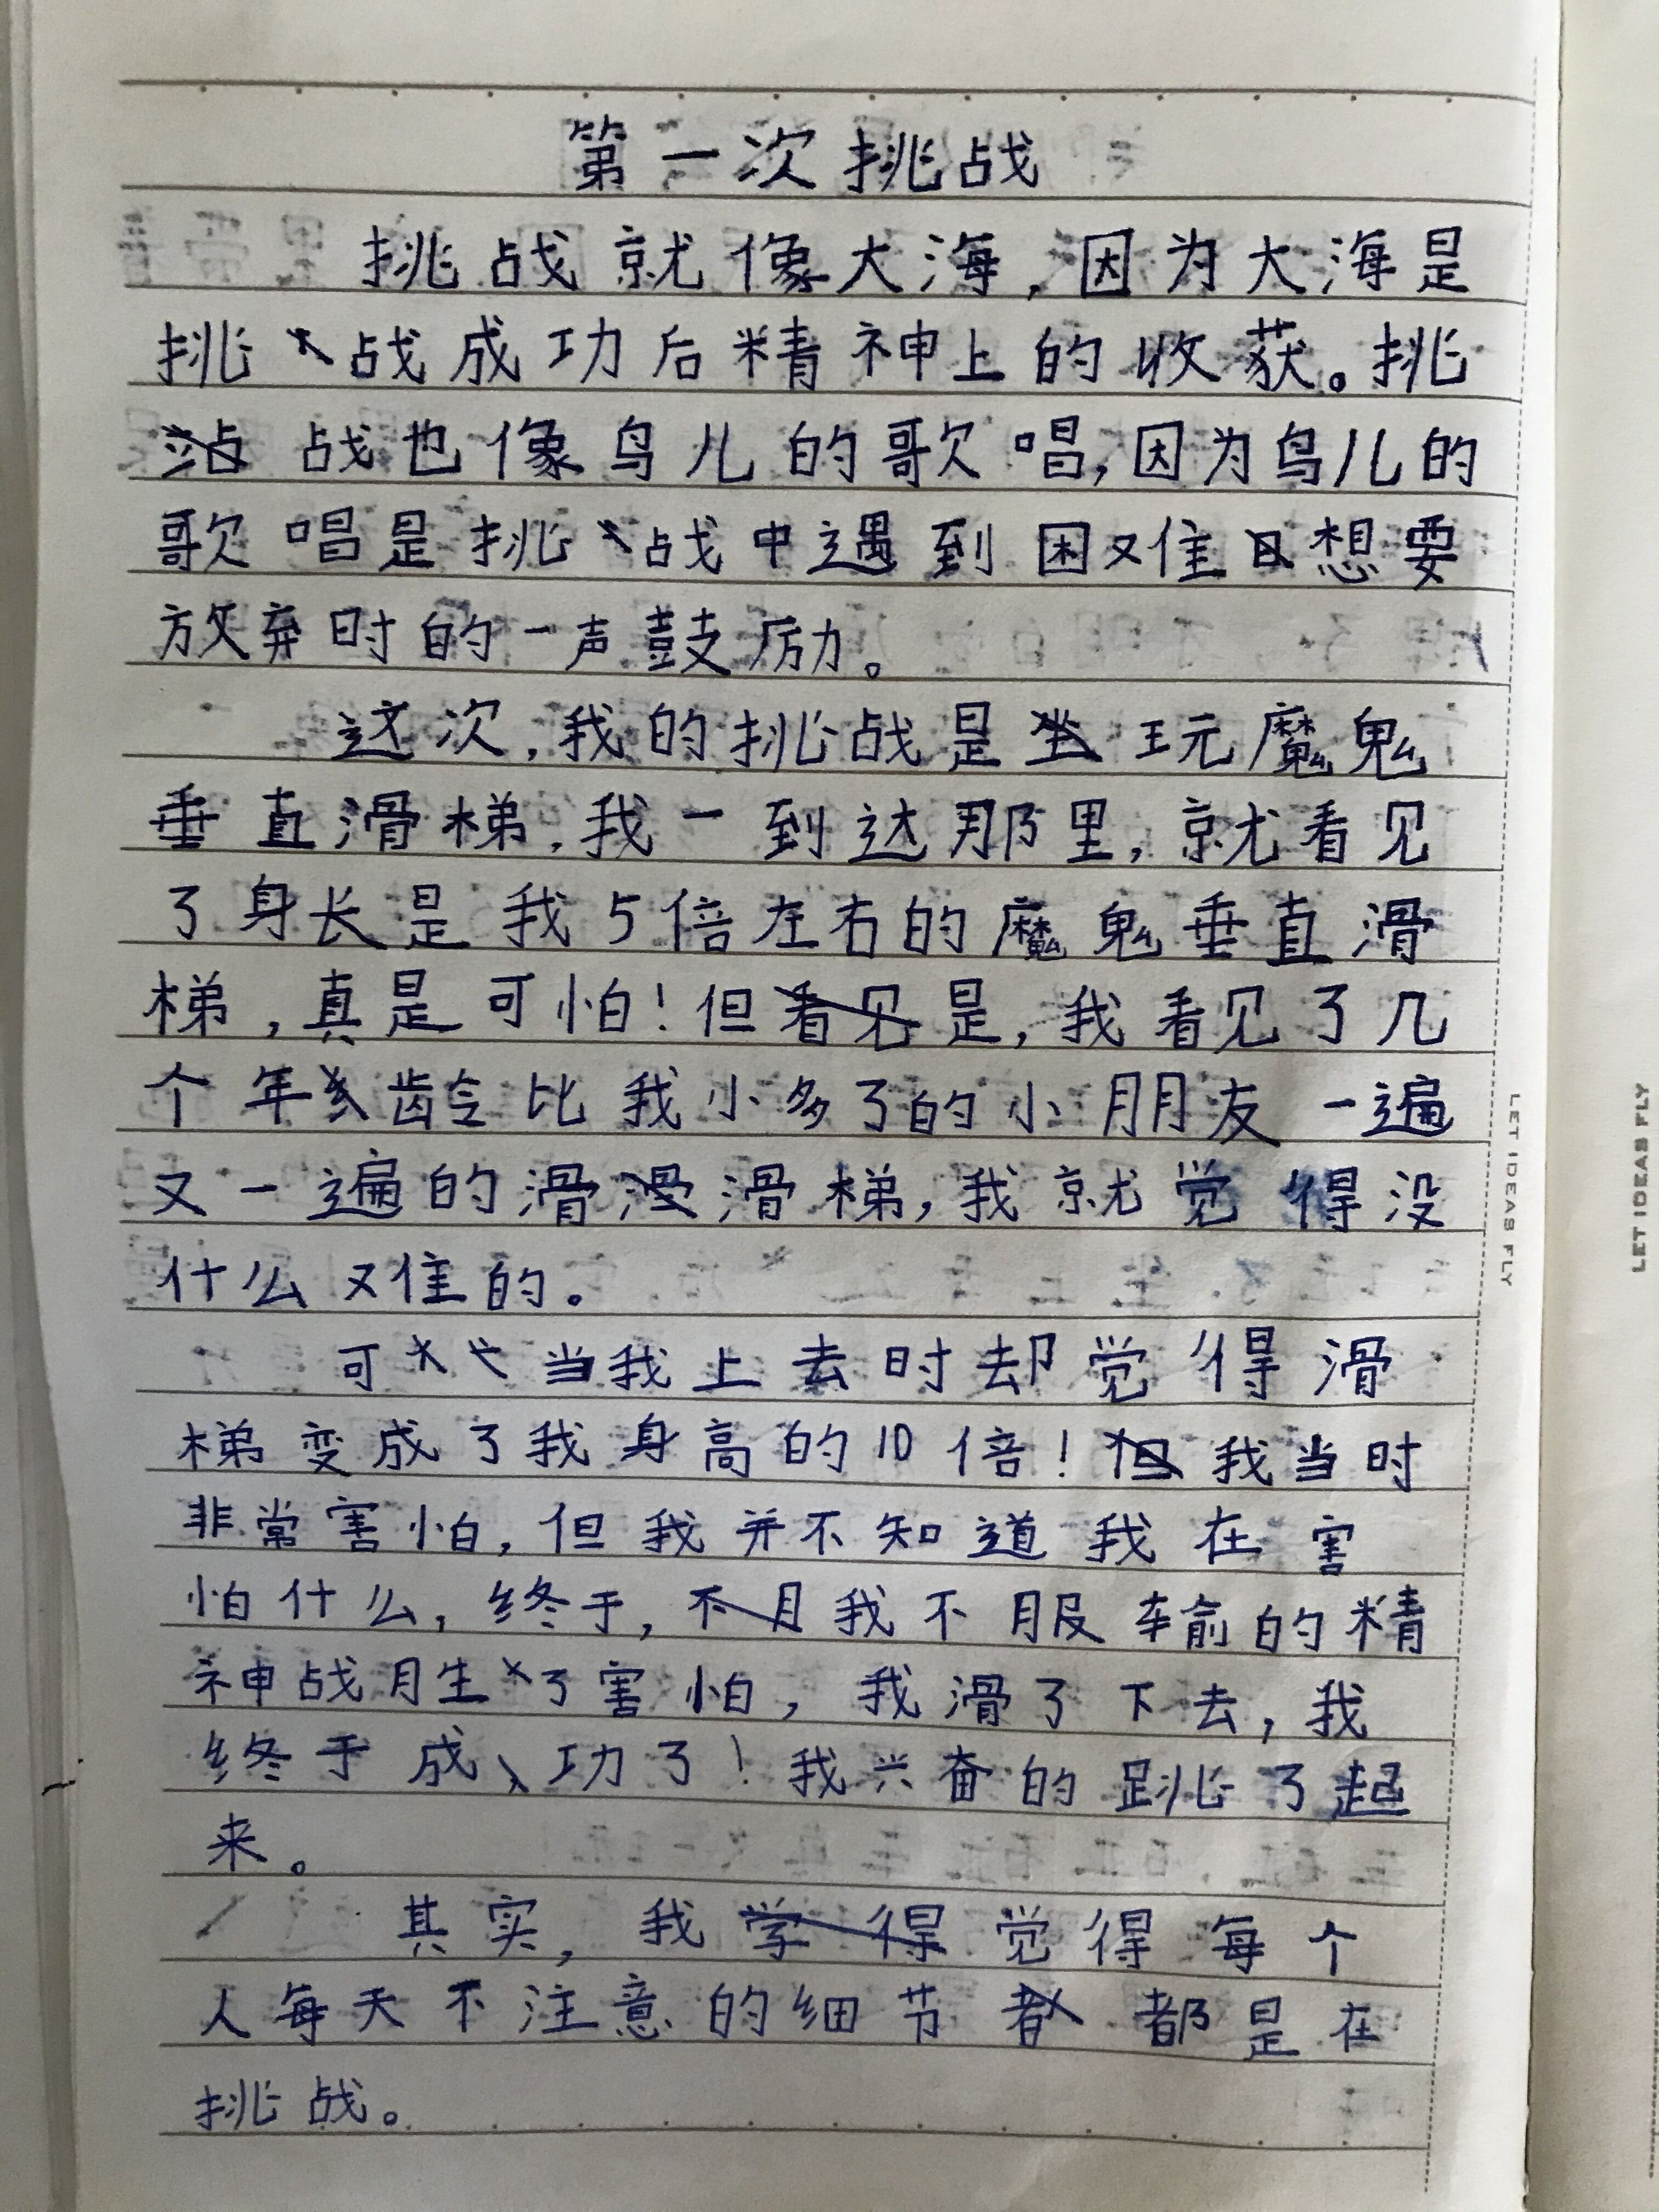 第一次挑战
挑战就像大海，因为大海是
挑战成功后精神上的收获。挑
战也像鸟儿的歌唱，因为鸟儿的
歌唱是挑战中遇到困难想要
放弃时的一声鼓励。
这次，我的挑战是玩魔鬼
垂直滑梯，我一到达那里，就看见
了身长是我5倍左右的魔鬼垂直滑
梯，真是可怕！但是，我看见了几
个年龄比我小多了的小朋友一遍
又一遍的滑滑梯，我就觉得没
什么难的。
可当我上去时却觉得滑
梯变成了我身高的10倍！我当时
非常害怕，但我并不知道我在害
怕什么，终于，我不服输的精
神战胜了害怕，我滑了下去，我
终于成功了！我兴奋的跳了起
来。
其实，我觉得每个
人每天不注意的细节都是在
挑战。
LET IDEAS FLY
LET IDEAS FLY